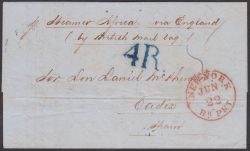 p Steamer Africa via England
(by British Mail bag)
4R.
Sor Don Daniel
Cadiz
Spain
NEW YORK
JUN
22
BR PKT